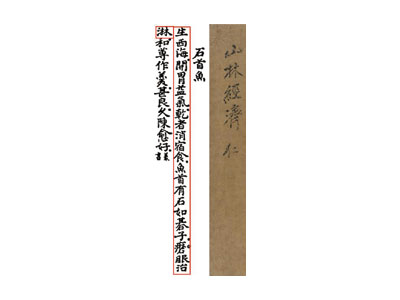 山林經濟 仁
石首魚
生西海開胃益氣乾者消宿食魚首有石如碁子磨服治
淋和蓴作羹甚良久陳愈好